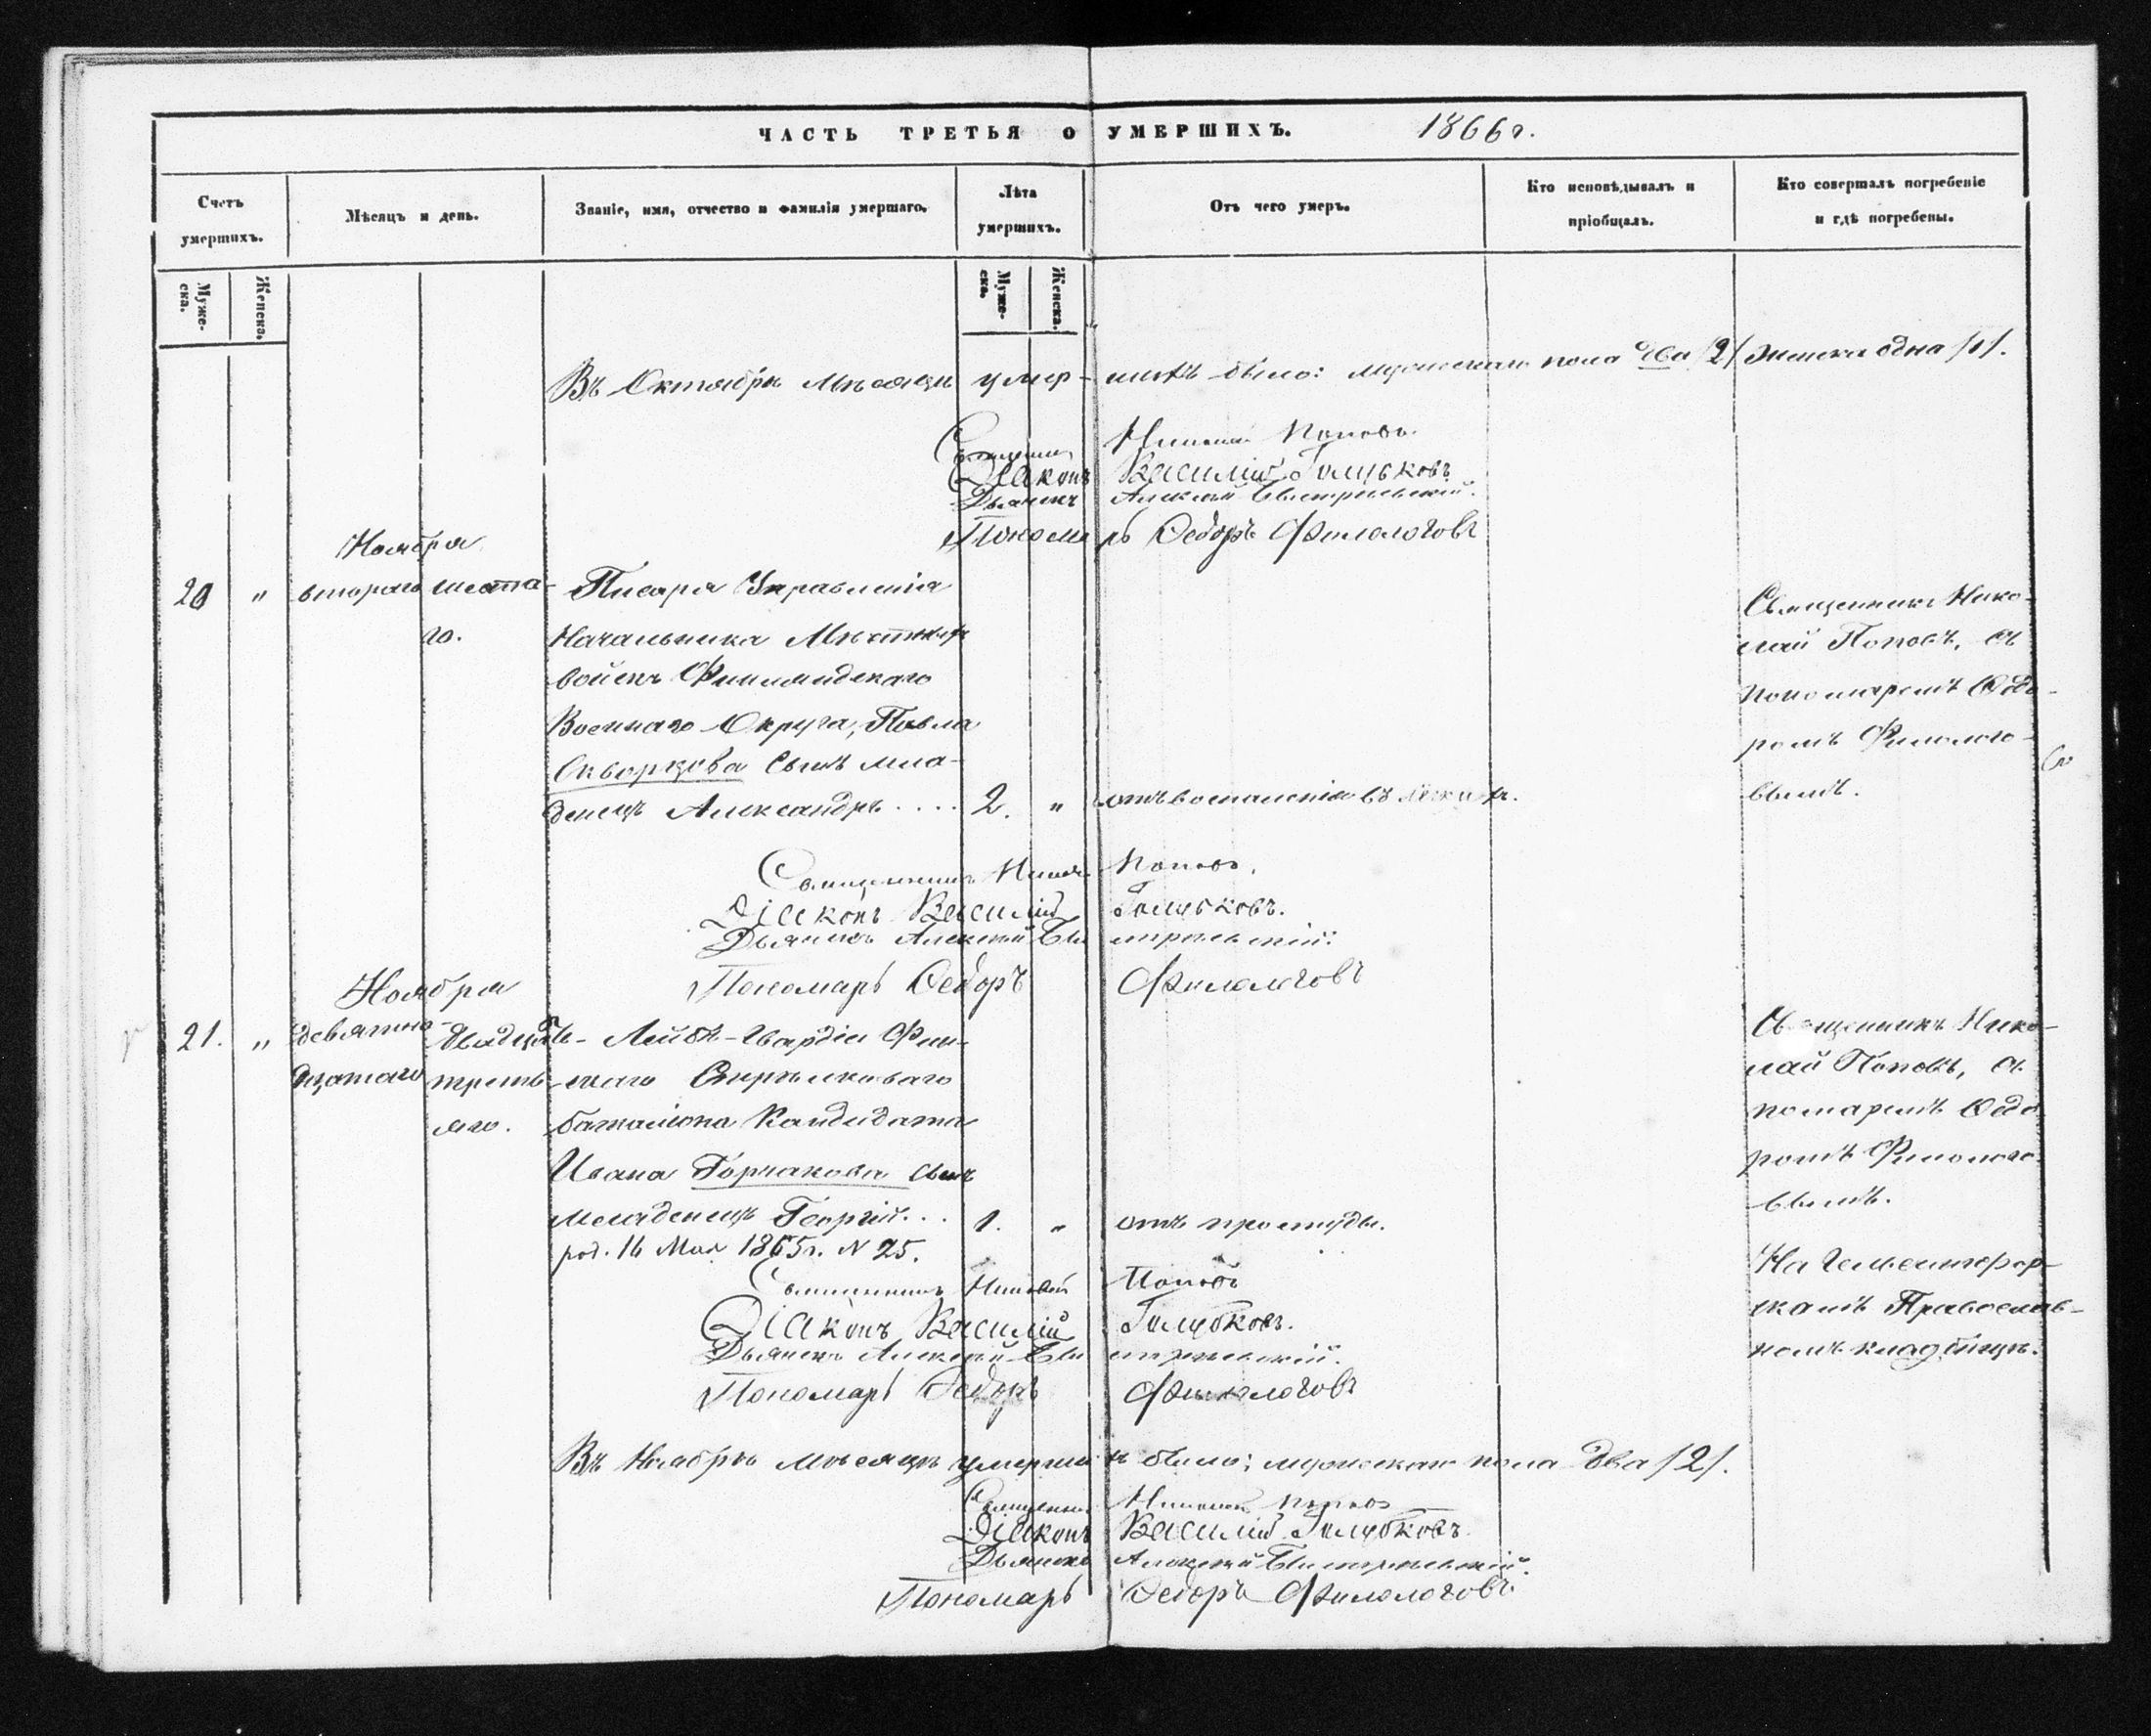 ЧАСТЬ ТРЕТЬЯ О УМЕРШИХЪ. 1866 г.
Счетъ умершихъ.
Мѣсяцъ и день.
Званіе, имя, отчество и фамилія умершаго.
Лѣта умершихъ.
Отъ чего умеръ.
Кто исповѣдывалъ и пріобщалъ.
Кто совершалъ погребеніе и гдѣ погребены.
Муже-ска.
Женска.
Муже-ска.
Женска.
Въ Октябрѣ мѣсяцѣ умер-шихъ было: мужескаго пола два /2/ женска одна /1/.
Священникъ Николай Поповъ
Діаконъ Василій Голубковъ
Дьячекъ Алексѣй
Пономарь Ѳедоръ Филологовъ
Ноября
20 " втораго шеста-
го.
Писаря Управленія
Начальника Мѣстныхъ
войскъ Финляндскаго
Военнаго Округа, Павла
Скворцова сынъ мла-
денецъ Александръ .... 2. " отъ воспаленія въ легкихъ.
Священникъ Нико-
лай Поповъ, съ
пономаремъ Ѳедо-
ромъ Филолого-
вымъ.
Священникъ Николай Поповъ.
Діаконъ Василій Голубковъ.
Дьячекъ Алексѣй
Пономарь Ѳедоръ Филологовъ
Ноября
21. " девятна-
дцатаго
двадцать-
треть-
яго.
Лейбъ-Гвардіи Фин-
скаго Стрѣлковаго
баталіона Кандидата
Ивана Горчакова сынъ
младенецъ Георгій... 1. " отъ простуды.
род. 16 Мая 1865 г. N 25.
Священникъ Нико-
лай Поповъ, съ
помаремъ Ѳедо
ромъ Филолого-
вымъ.
На Гельсингфор-
скомъ Православ-
номъ кладбищѣ.
Священникъ Николай Поповъ
Діаконъ Василій Голубковъ.
Дьячекъ Алексѣй
Пономарь Ѳедоръ Филологовъ
Въ Ноябрѣ мѣсяцѣ умершихъ было; мужескаго пола два /2/.
Священникъ Николай Поповъ
Діаконъ Василій Голубковъ.
Дьячекъ Алексѣй
Пономарь Ѳедоръ Филологовъ